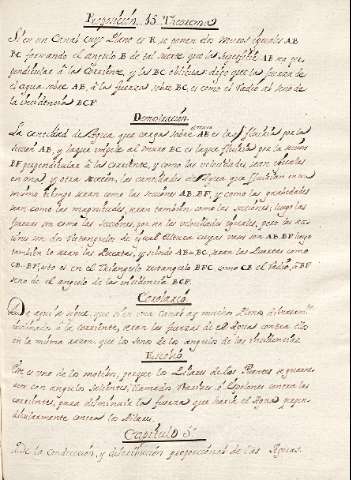 Proposición. 15. Theorema
Si en un Canal cuyo Plano es R, se ponen dos Muros iguales AB
BC formando el angulo B de tal suerte que la superficie AB sea per-
pendicular à la Corriente, y la BC obliqua: digo que la fuerza de
el agua sobre AB, à la fuerza sobre BC, es como el Radio al seno de
la incidencia BCF.
Demostración.
La cantidad de Agua que carga sobre AB es la que fluiria por la
seccion AB, y la que impele al muro BC es la que fluiria por la seccion
BF perpendicular à la corriente, y como las velocidades sean iguales
en una y otra seccion, las cantidades de Agua que fluirian en un
mismo tiempo seran como las secciones AB. BF, y como las
son como las magnitudes, seran tambien como las secciones; luego las
fuerzas son como las secciones, por ser las velocidades iguales, pero las sec-
ciones son dos Rectangulos de igual Altura cuyas vases son AB. BF luego
tambien lo seran las fuerzas, y siendo AB=BC, seran las fuerzas como
CB. BF, esto es en el Triangulo rectangulo BFC como CB el Radio, à BF
seno de el angulo de la incidencia BCF.
Corolario
De aqui se sigue, que si en una Canal ay muchos Planos
inclinados à la corriente, seran las fuerzas de el Agua contra ellos
en la misma razon que los senos de los angulos de las Incidencias.
Escolio
Por eso los Pilares de las Puentes se guarne-
cen con angulos salientes, llamados contra las
corrientes, para disminuir la fuerza que haria el Agua perpen-
dicularmente contra los Pilares.
Capitulo 5º
De la Conducción, y distribución proporcional de las Aguas.